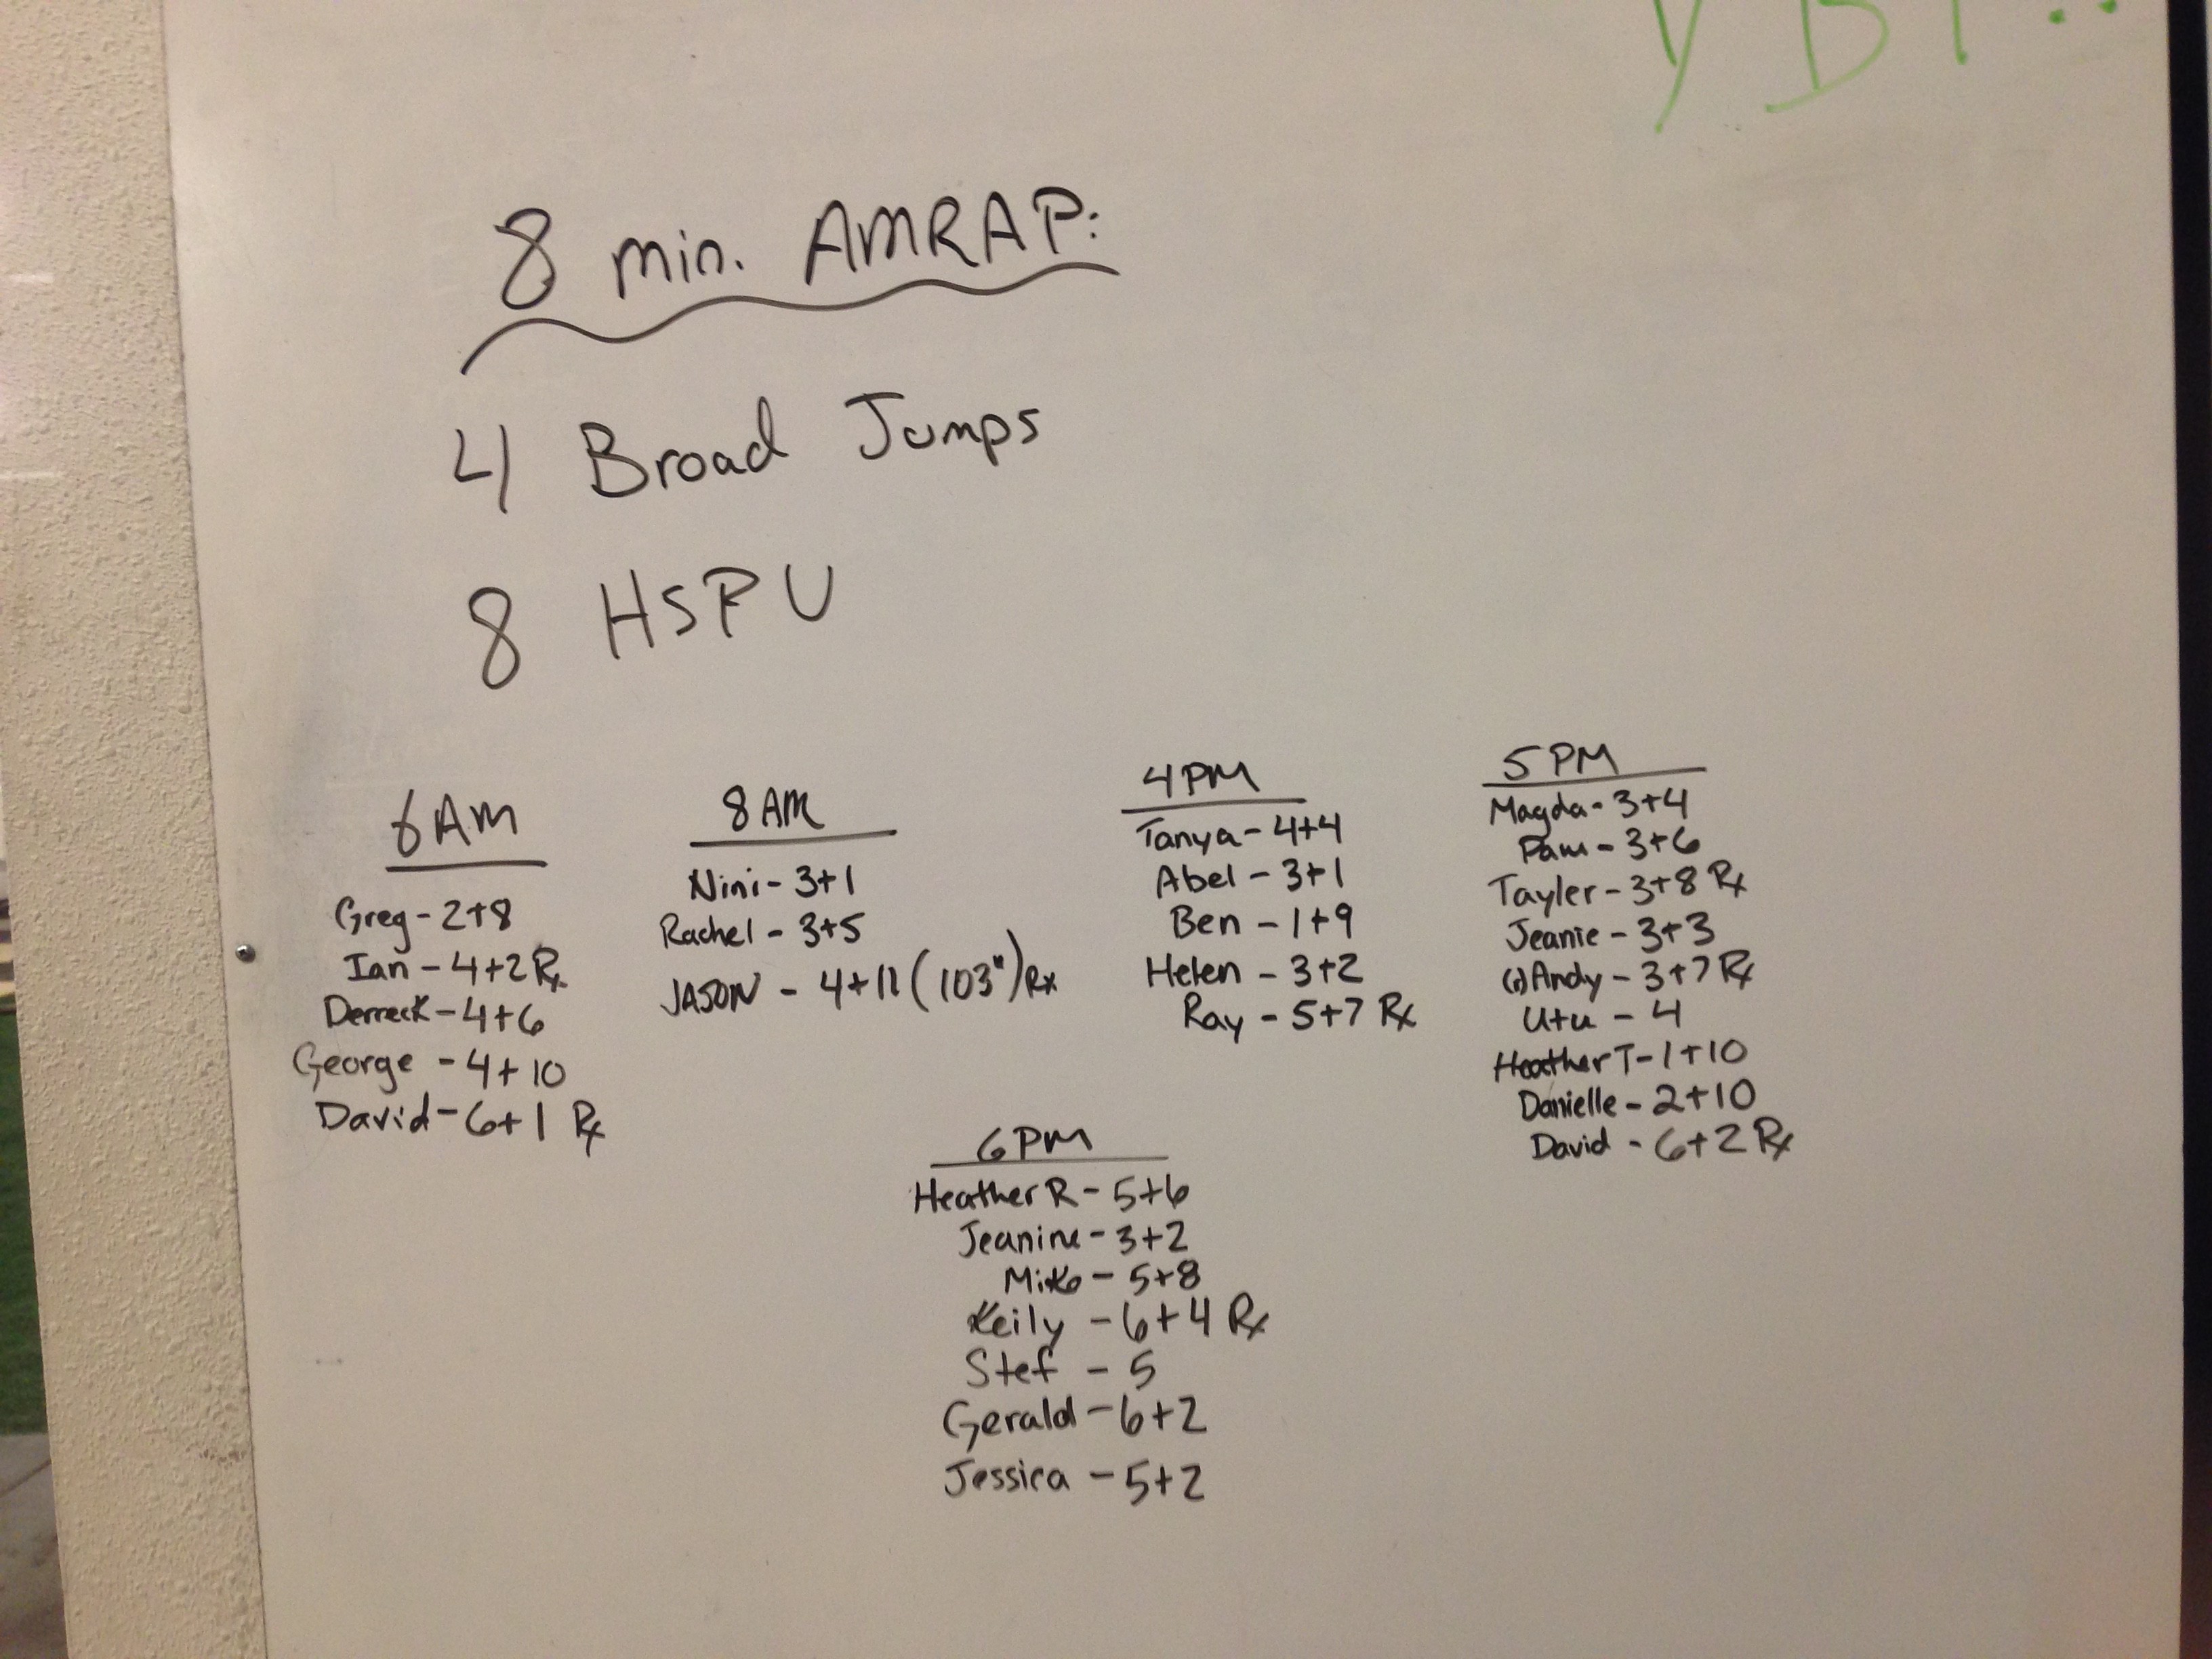 8 min. AMRAP:
4 Broad Jumps
8 HSPU
6 AM
Greg - 2+8
Ian - 4+2 Rx
Derreck - 4+6
George - 4+10
David - 6+1 Rx
8 AM
Nini - 3+1
Rachel - 3+5
JASON - 4+11 (103") Rx
4 PM
Tanya - 4+4
Abel - 3+1
Ben - 1+9
Helen - 3+2
Ray - 5+7 Rx
5 PM
Magda - 3+4
Pam - 3+6
Tayler - 3+8 Rx
Jeanie - 3+3
Andy - 3+7 Rx
Utu - 4
Heather T - 1+10
Danielle - 2+10
David - 6+2 Rx
6 PM
Heather R - 5+6
Jeanine - 3+2
- 5+8
Keily - 6+4 Rx
Stef - 5
Gerald - 6+2
Jessica - 5+2